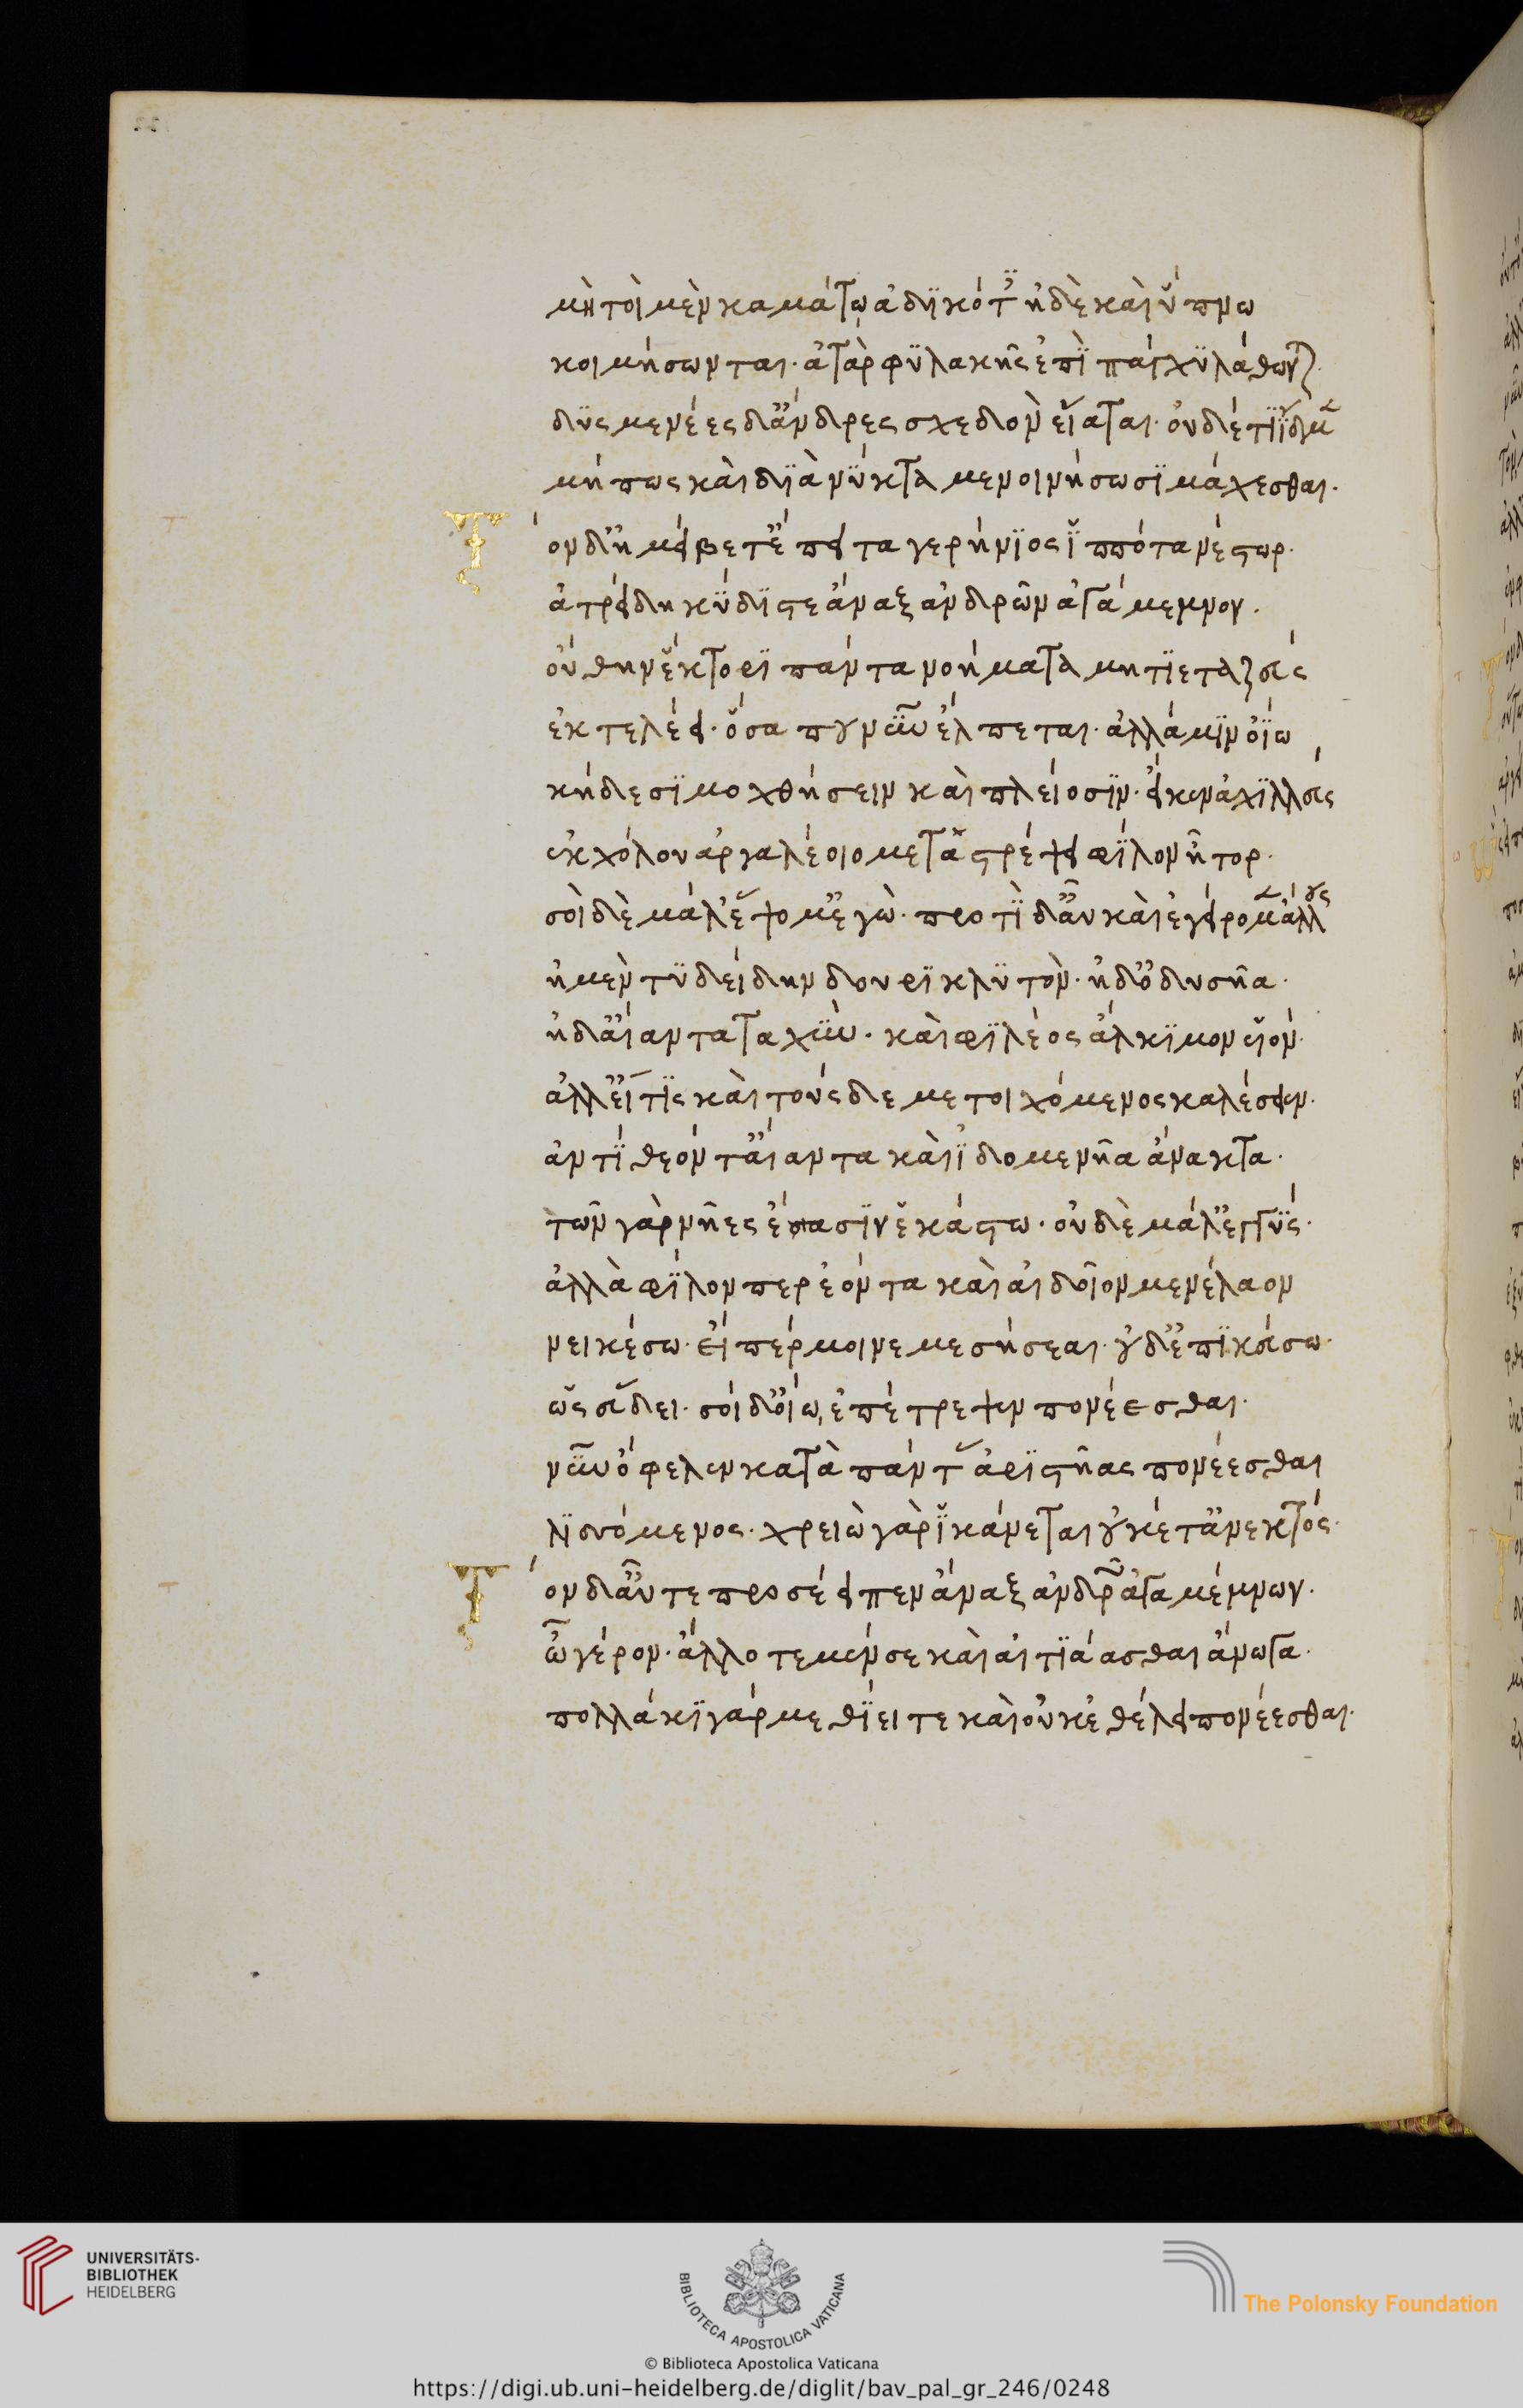 μὴ τοὶ μὲν καμάτω ἀδϊκότ ἠδὲ καὶ ὕπνω
κοιμήσωνται· ἀτὰρ φϋλακῆς ἐπῒ πάγχϋ λάθωνται·
δϋσμενέες δ' ἄνδρες σχεδὸν εἵαται· οὐδέ τϊ ἴδμεν
μή πως καὶ δϊὰ νύκτα μενοινήσωσϊ μάχεσθαι·
Τὸν δ' ἠμείβετ' ἔπειτα γερήνϊος ἱππότα νέστωρ·
ἀτρείδη κύδϊστε ἄναξ ἀνδρῶν ἀγάμεμνον·
οὔ θην ἕκτορϊ πάντα νοήματα μητϊέτα ζεύς
ἐκτελέει· ὅσα που νῦν ἔλπεται· ἀλλά μϊν ὀΐω
κήδεσϊ μοχθήσειν καὶ πλείοσϊν· εἴ κεν ἀχϊλλεύς
ἐκ χόλου ἀργαλέοιο μεταστρέψει φίλον ἦτορ·
σοὶ δὲ μάλ' ἕψομ' ἐγώ· προτῒ δ' αὖ καὶ ἐγείρομεν ἄλλους
ἠμὲν τϋδείδην δουρϊκλϋτὸν· ἠδ' ὀδυσῆα·
ἠδ' αἴαντα ταχὺν· καὶ φϋλέος ἄλκϊμον υἱόν·
ἀλλ' εἴ τϊς καὶ τούσδε μετοιχόμενος καλέσειεν·
ἀντΐθεόν τ' αἴαντα καὶ ἰδομενῆα ἄνακτα·
τῶν γὰρ νῆες ἔασϊν ἑκάστω· οὐδὲ μάλ' ἐγγΰς·
ἀλλὰ φίλον περ ἐόντα καὶ αἰδοῖον μενέλαον
νεικέσω· εἴ πέρ μοι νεμεσήσεαι· οὐδ' ἐπϊκεύσω·
ὡς εὕδει· σοὶ δ' οἴω, ἐπέτρεψεν πονέεσθαι·
νῦν ὄφελεν κατὰ πάντας ἀρϊστῆας πονέεσθαι
λϊσσόμενος· χρειὼ γὰρ ἱκάνεται οὐκέτ' ἀνεκτός·
Τὸν δ' αὖτε προσέειπεν ἄναξ ἀνδρῶν ἀγαμέμνων·
ὦ γέρον· ἄλλοτε μέν σε καὶ αἰτϊάασθαι ἄνωγα·
πολλάκϊ γάρ μεθΐει τε καὶ οὐκ ἐθέλει πονέεσθαι·
UNIVERSITÄTS-
BIBLIOTHEK
HEIDELBERG
BIBLIOTECA APOSTOLICA VATICANA
The Polonsky Foundation
© Biblioteca Apostolica Vaticana
https://digi.ub.uni-heidelberg.de/diglit/bav_pal_gr_246/0248